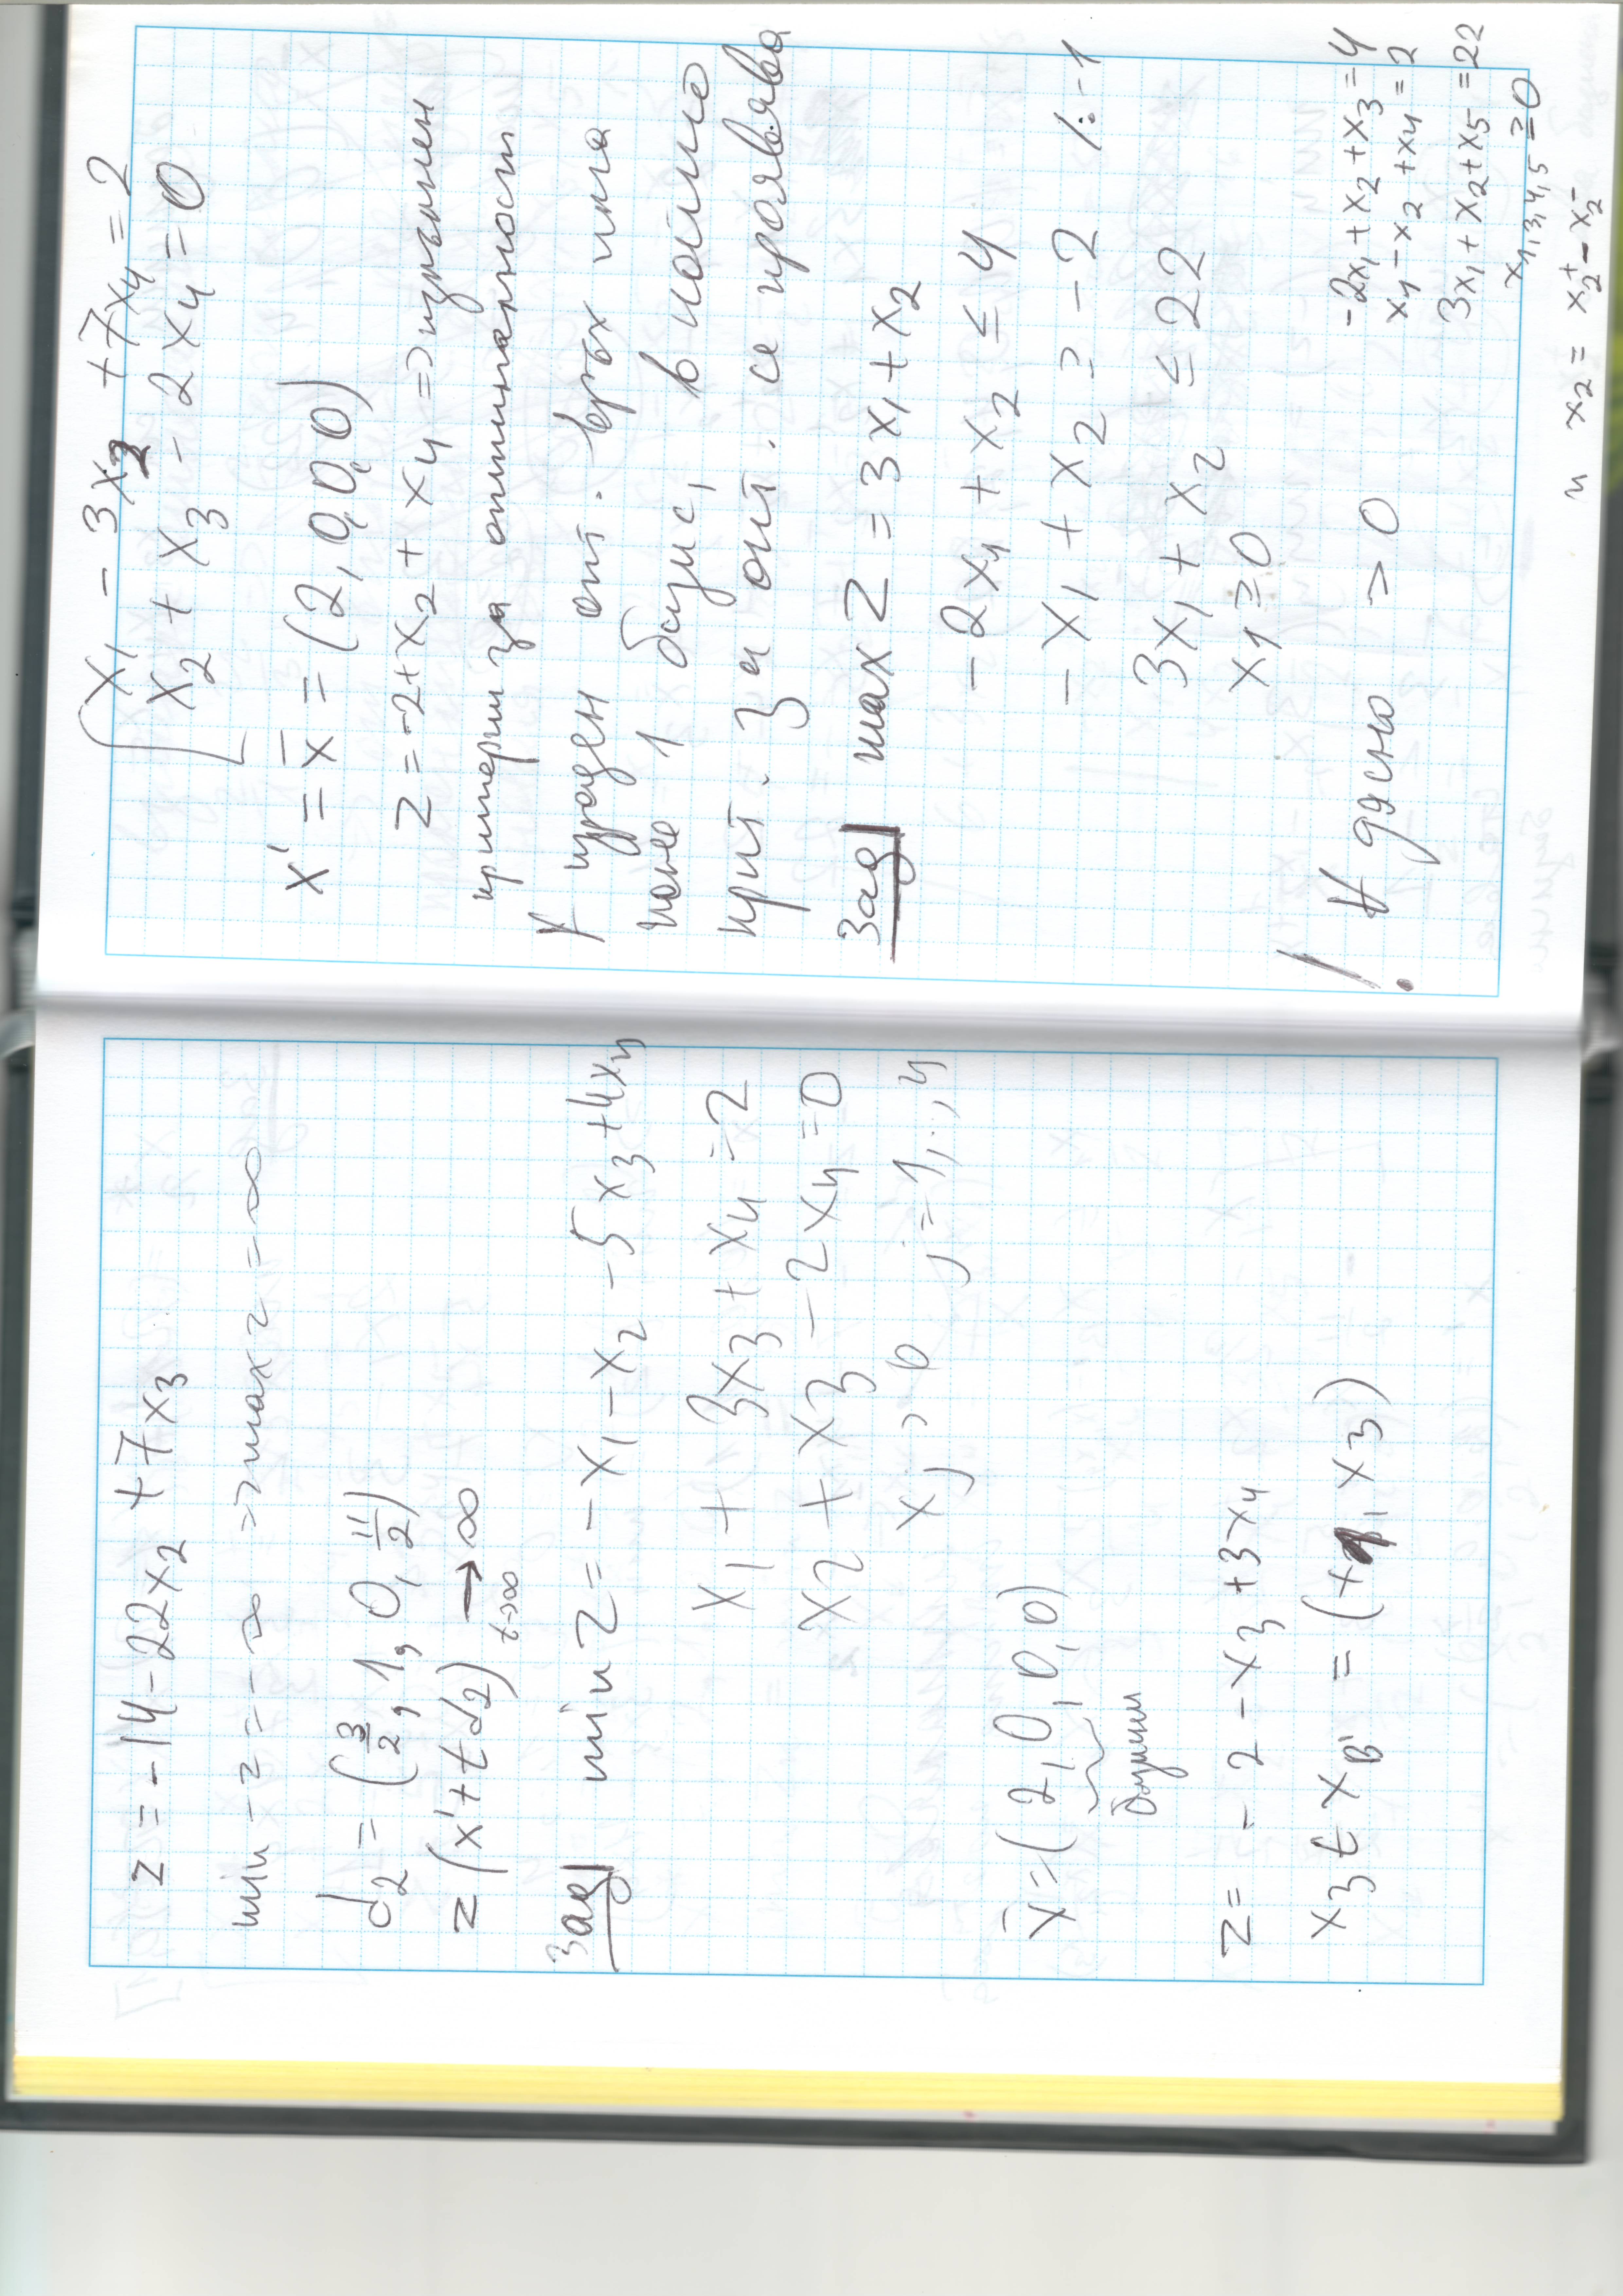 z = -14 - 22x₂ + 7x₃
min -z = -∞ => max z = ∞
d₂ = (3/2, 1, 0, 11/2)
z(x' + t d₂) → ∞
t→∞
Зад min z = -x₁ - x₂ - 5x₃ + 4x₄
x₁ + 3x₃ + x₄ = 2
x₂ + x₃ - 2x₄ = 0
xⱼ ≥ 0 j = 1,..,4
x̄ = (2, 0, 0, 0)
базисни
z = -2 - x₃ + 3x₄
x₃ t x_B' = (x₁, x₃)
x₁ - 3x₂ + 7x₄ = 2
x₂ + x₃ - 2x₄ = 0
x' = x̄ = (2, 0, 0, 0)
z = -2 + x₂ + x₄ => изпълнен
критерии за оптималност
∀ изроден опт. връх има
поне 1 базис, в който
крит. за опт. се проявява
Зад max z = 3x₁ + x₂
-2x₁ + x₂ ≤ 4
-x₁ + x₂ ≥ -2 /:-1
3x₁ + x₂ ≤ 22
x₁ ≥ 0
! дясно > 0
-2x₁ + x₂ + x₃ = 4
x₁ - x₂ + x₄ = 2
3x₁ + x₂ + x₅ = 22
x₁,₃,₄,₅ ≥ 0
и x₂ = x₂⁺ - x₂⁻